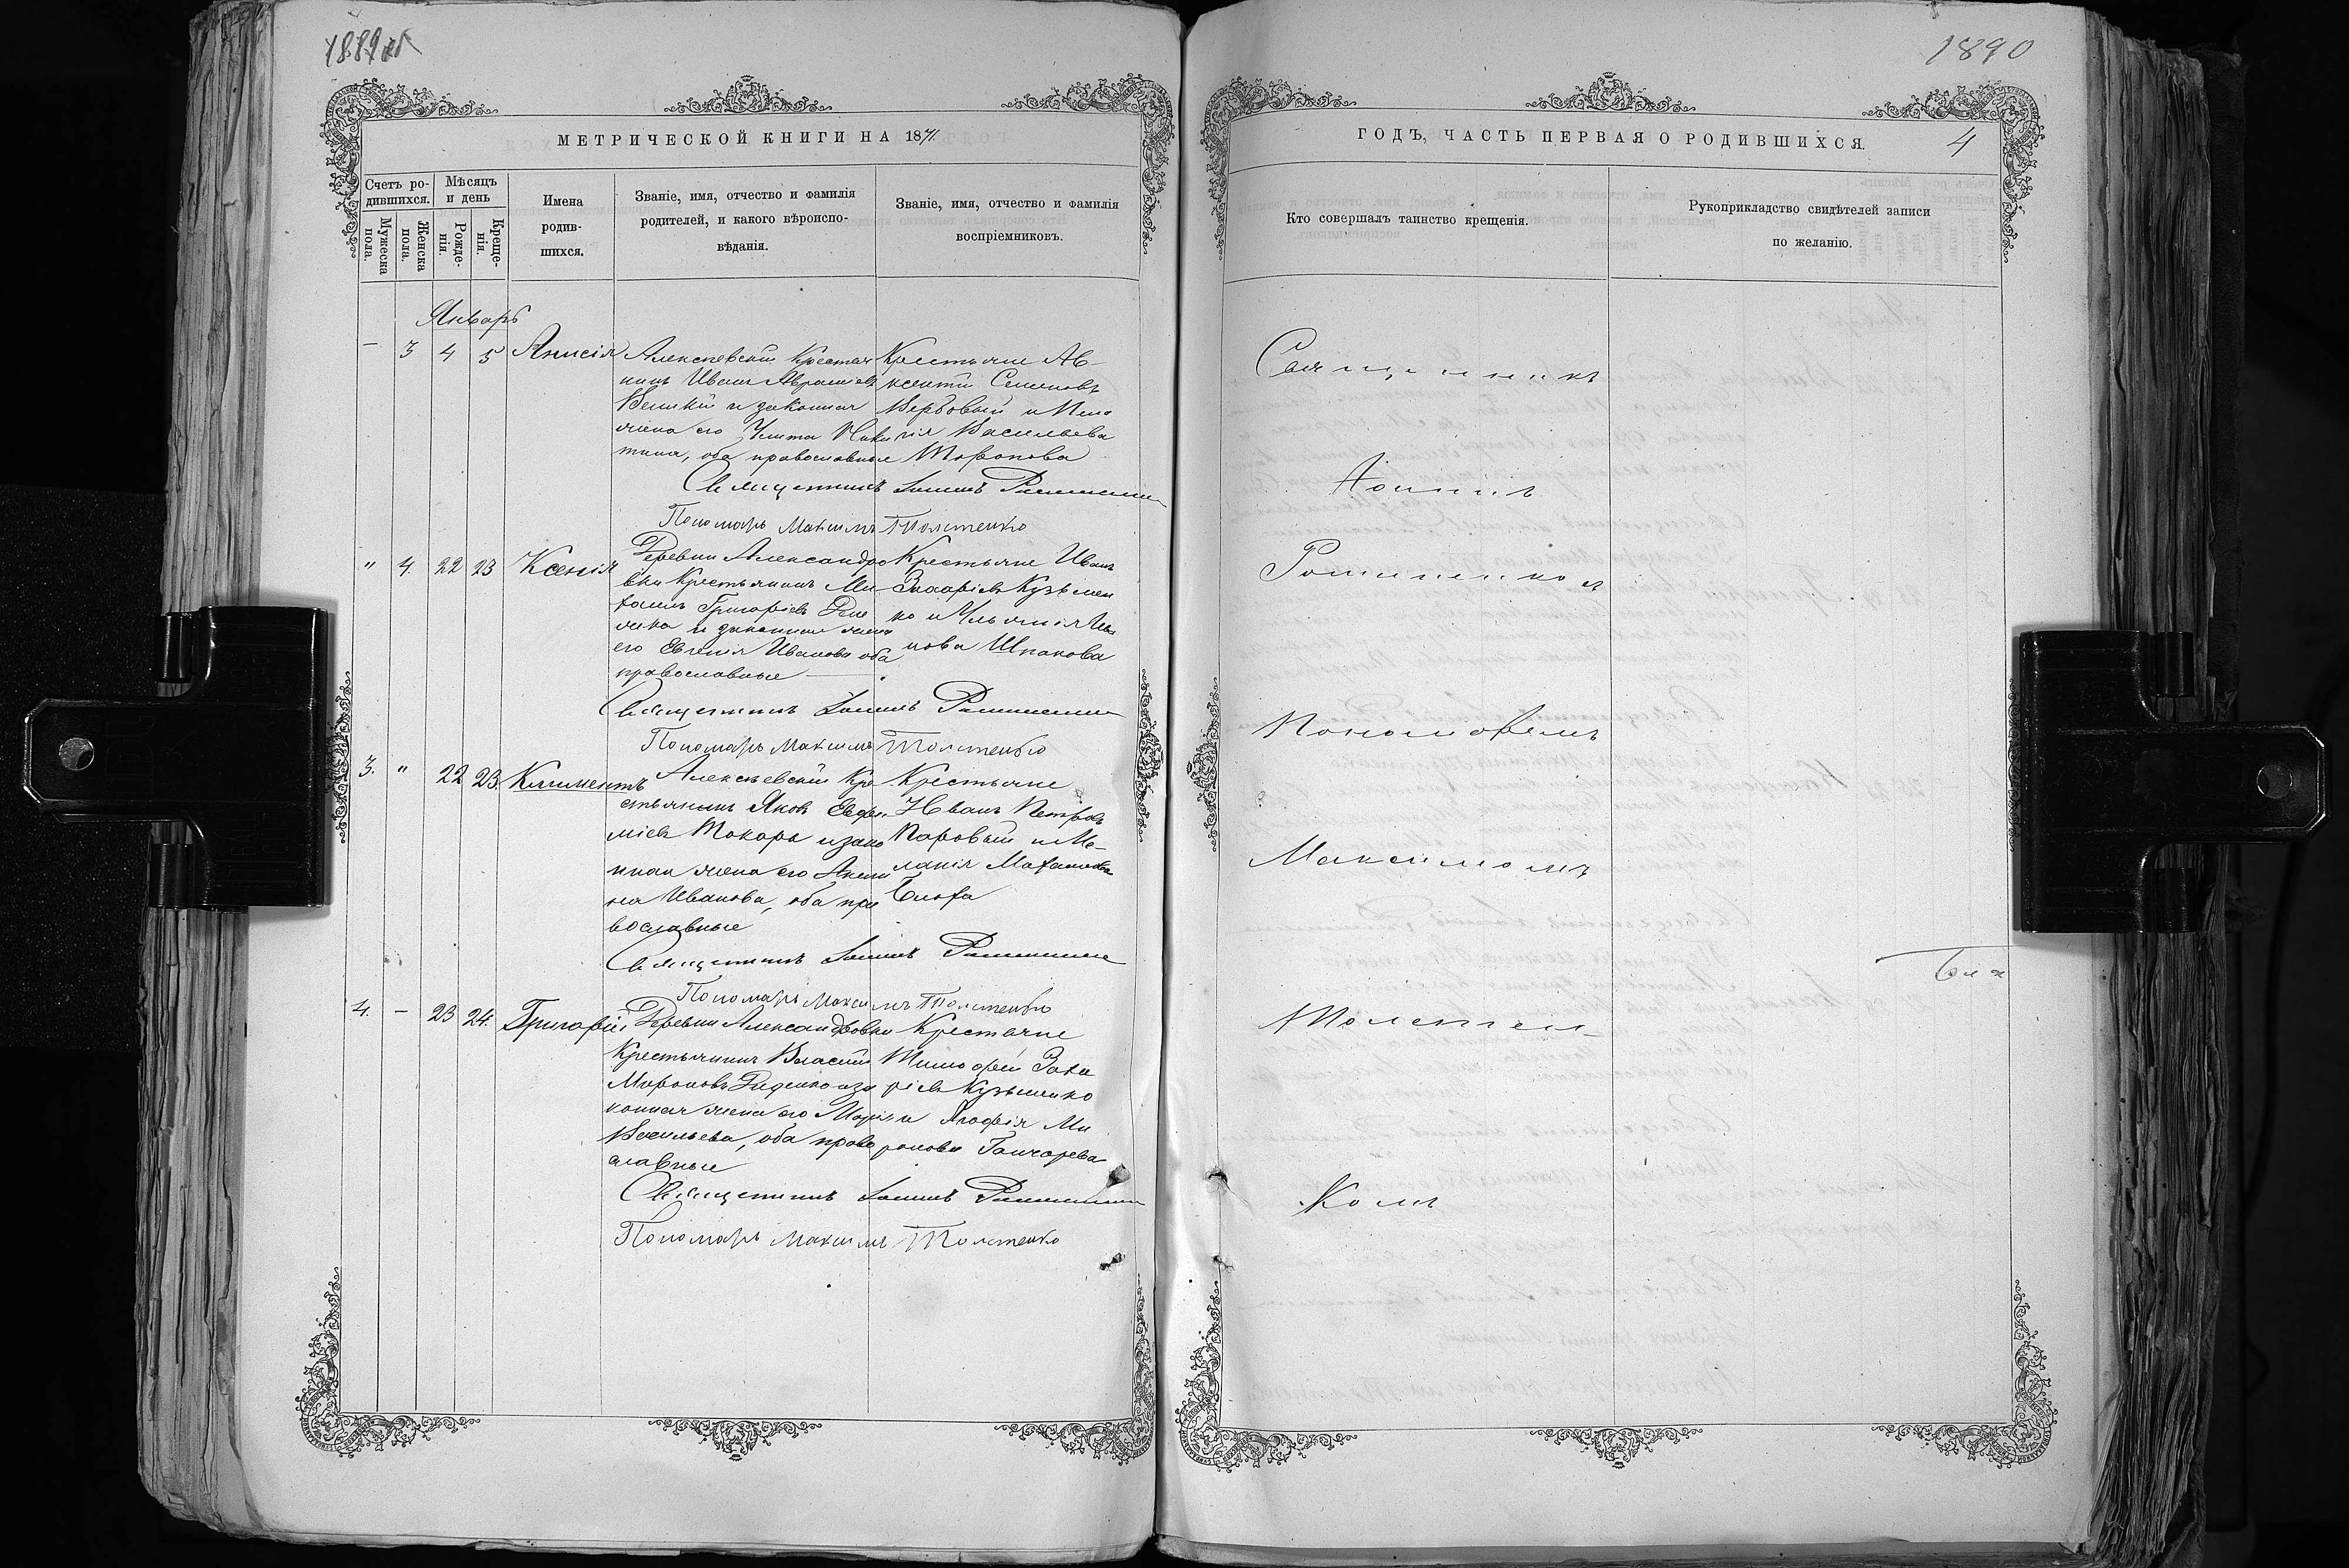 1889 об
МЕТРИЧЕСКОЙ КНИГИ НА 1871.
Счетъ ро-
дившихся.
Мѣсяцъ
и день
Мужеска
пола.
Женска
пола.
Рожде-
нія.
Креще-
нія.
Имена
родив-
шихся.
Званіе, имя, отчество и фамилія
родителей, и какого вѣроиспо-
вѣданія.
Званіе, имя, отчество и фамилія
воспріемниковъ.
Январь
— 3 4 5 Анисія
Алексѣевскій Крестья
нинъ Иванъ
Великій и законная
жена его Ники
тина, оба православные
Крестьяне Ав-
ксентій Семеновъ
Вербовый и Пела
гія Васильева
Священникъ Іоаннъ Романенко
Пономарь Максимъ Толстенко
" 4. 22 23 Ксенія
Деревни Александро
вки Крестьянинъ Ми
хаилъ Григоріевъ
и законная жена
его Евгенія Иванова оба
православные
Крестьяне Иванъ
Захаріевъ Кузьмен
ко и Ульянія Ива
нова Шпакова
Священникъ Іоаннъ Романенко
Пономарь Максимъ Толстенко
3. " 22 23. Климентъ
Алексѣевскій Кре
стьянинъ Яковъ Евфи
міевъ Токарь и зако
нная жена его
Иванова, оба пра
вославные
Крестьяне
Иванъ Петровъ
Паровый и Ме-
ланія
Священникъ Іоаннъ Романенко
Пономарь Максимъ Толстенко
4. — 23 24. Григорій
Деревни Александровки
Крестьянинъ Власій
Мироновъ Диденко и за
конная жена его Марія
Васильева, оба право
славные
Крестьяне
Тимофей Заха
ріевъ Кузьменко
и Агафія Ми
ронова Гончарова
Священникъ Іоаннъ Романенко
Пономарь Максимъ Толстенко
1890
ГОДЪ, ЧАСТЬ ПЕРВАЯ О РОДИВШИХСЯ.
4
Кто совершалъ таинство крещенія.
Рукоприкладство свидѣтелей записи
по желанію.
Священникъ
Іоаннъ
Пономаремъ
Максимомъ
Толстен-
комъ